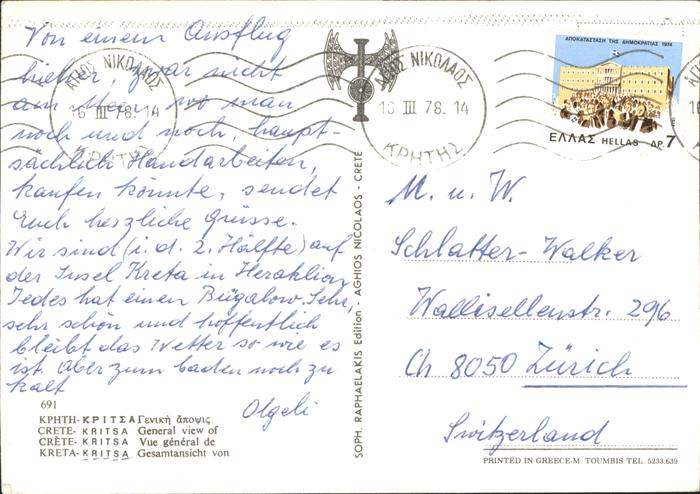 Von einem Ausflug
hieher, zwar nicht
am Meer wo man
noch und noch, haupt-
sächlich Handarbeiten,
kaufen könnte, sendet
Euch herzliche Grüsse.
Wir sind (i. d. 2. Hälfte) auf
der Insel Kreta in Heraklion
Jedes hat einen Bügalow. Sehr,
sehr schön und hoffentlich
bleibt das Wetter so wie es
ist. Aber zum baden noch zu
kalt
Olgeli
691
ΚΡΗΤΗ - ΚΡΙΤΣΑ Γενική ἄποψις
CRETE - KRITSA General view of
CRÈTE - KRITSA Vue général de
KRETA - KRITSA Gesamtansicht von
SOPH. RAPHAELAKIS Edition - AGHIOS NICOLAOS - CRETE
ΑΓΙΟΣ ΝΙΚΟΛΑΟΣ
16 III 78. 14
ΚΡΗΤΗΣ
ΑΓΙΟΣ ΝΙΚΟΛΑΟΣ
16 III 78. 14
ΚΡΗΤΗΣ
ΑΠΟΚΑΤΑΣΤΑΣΗ ΤΗΣ ΔΗΜΟΚΡΑΤΙΑΣ 1974
ΕΛΛΑΣ HELLAS ΔΡ. 7
M. u. W.
Schlatter-Walker
Wallisellenstr. 296
Ch 8050 Zürich
Switzerland
PRINTED IN GREECE-M. TOUMBIS TEL. 5233.639